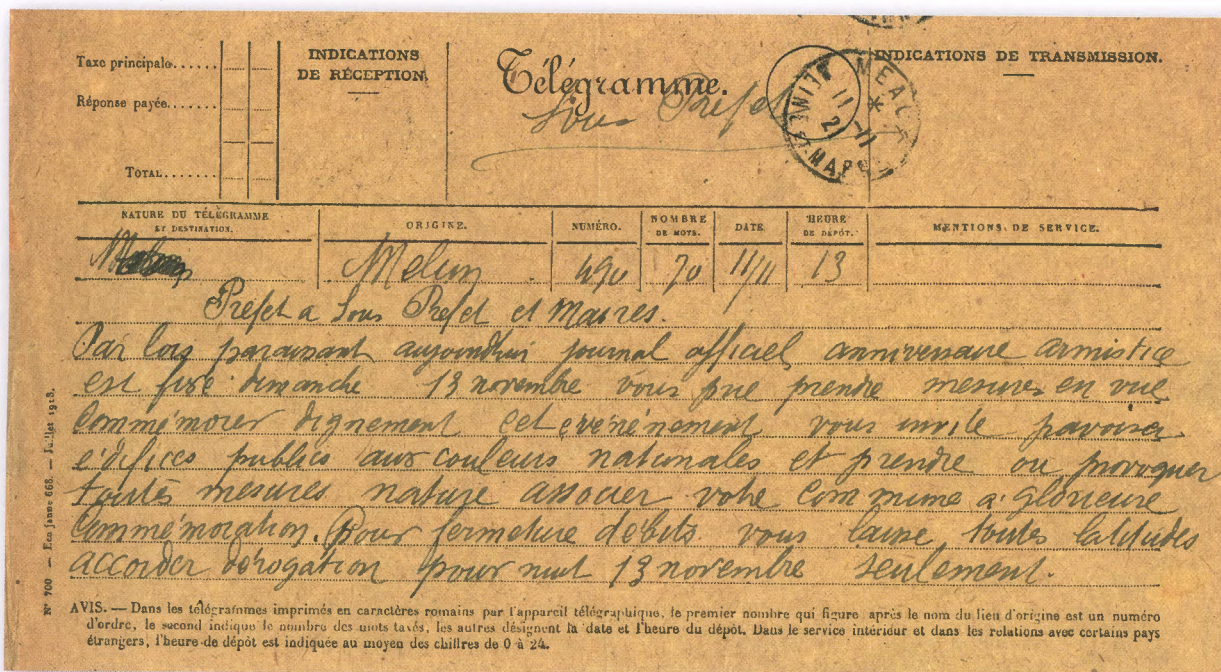 Taxe principale......
Réponse payée.......
TOTAL.......
INDICATIONS
DE RÉCEPTION.
Télégramme.
Sous Préfet
INDICATIONS DE TRANSMISSION.
MEAUX
*
11-11
21
NATURE DU TÉLÉGRAMME
ET DESTINATION.
ORIGINE.
NUMÉRO.
NOMBRE
DE MOTS.
DATE
HEURE
DE DÉPÔT.
MENTIONS DE SERVICE.
Melun 490 70 11/11 13
Préfet a Sous Préfet et Maires.
Par lois paraissant aujourdhui journal officiel anniversaire armistice
est fixé dimanche 13 novembre vous prie prendre mesures en vue
Commémorer dignement cet événement vous invite pavoiser
édifices publics aux couleurs nationales et prendre ou provoquer
toutes mesures nature associer votre commune à glorieuse
Commémoration. Pour fermeture débits vous laisse toutes latitudes
accorder dérogation pour nuit 13 novembre seulement.
N° 700 — Enc janne 668. — Juillet 1918.
AVIS. — Dans les télégrammes imprimés en caractères romains par l'appareil télégraphique, le premier nombre qui figure après le nom du lieu d'origine est un numéro
d'ordre, le second indique le nombre des mots taxés, les autres désignent la date et l'heure du dépôt. Dans le service intérieur et dans les relations avec certains pays
étrangers, l'heure de dépôt est indiquée au moyen des chiffres de 0 à 24.